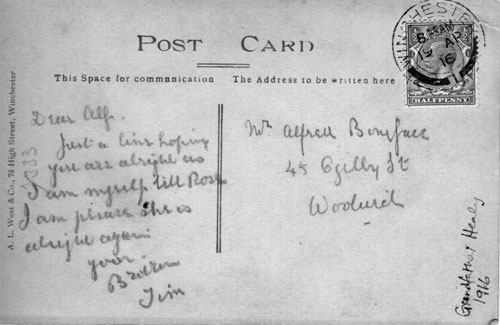 POST CARD
This Space for communication
The Address to be written here
WINCHESTER
16
HALFPENNY
A. L. West & Co., 73 High Street, Winchester
Dear Alf.
Just a line hoping
you are alright as
I am myself till Rose
I am please she is
alright again
your
Brother
Jim
Mr Alfred Boniface
45 Ogilby St
Woolwich
Grandfather Healy
1916